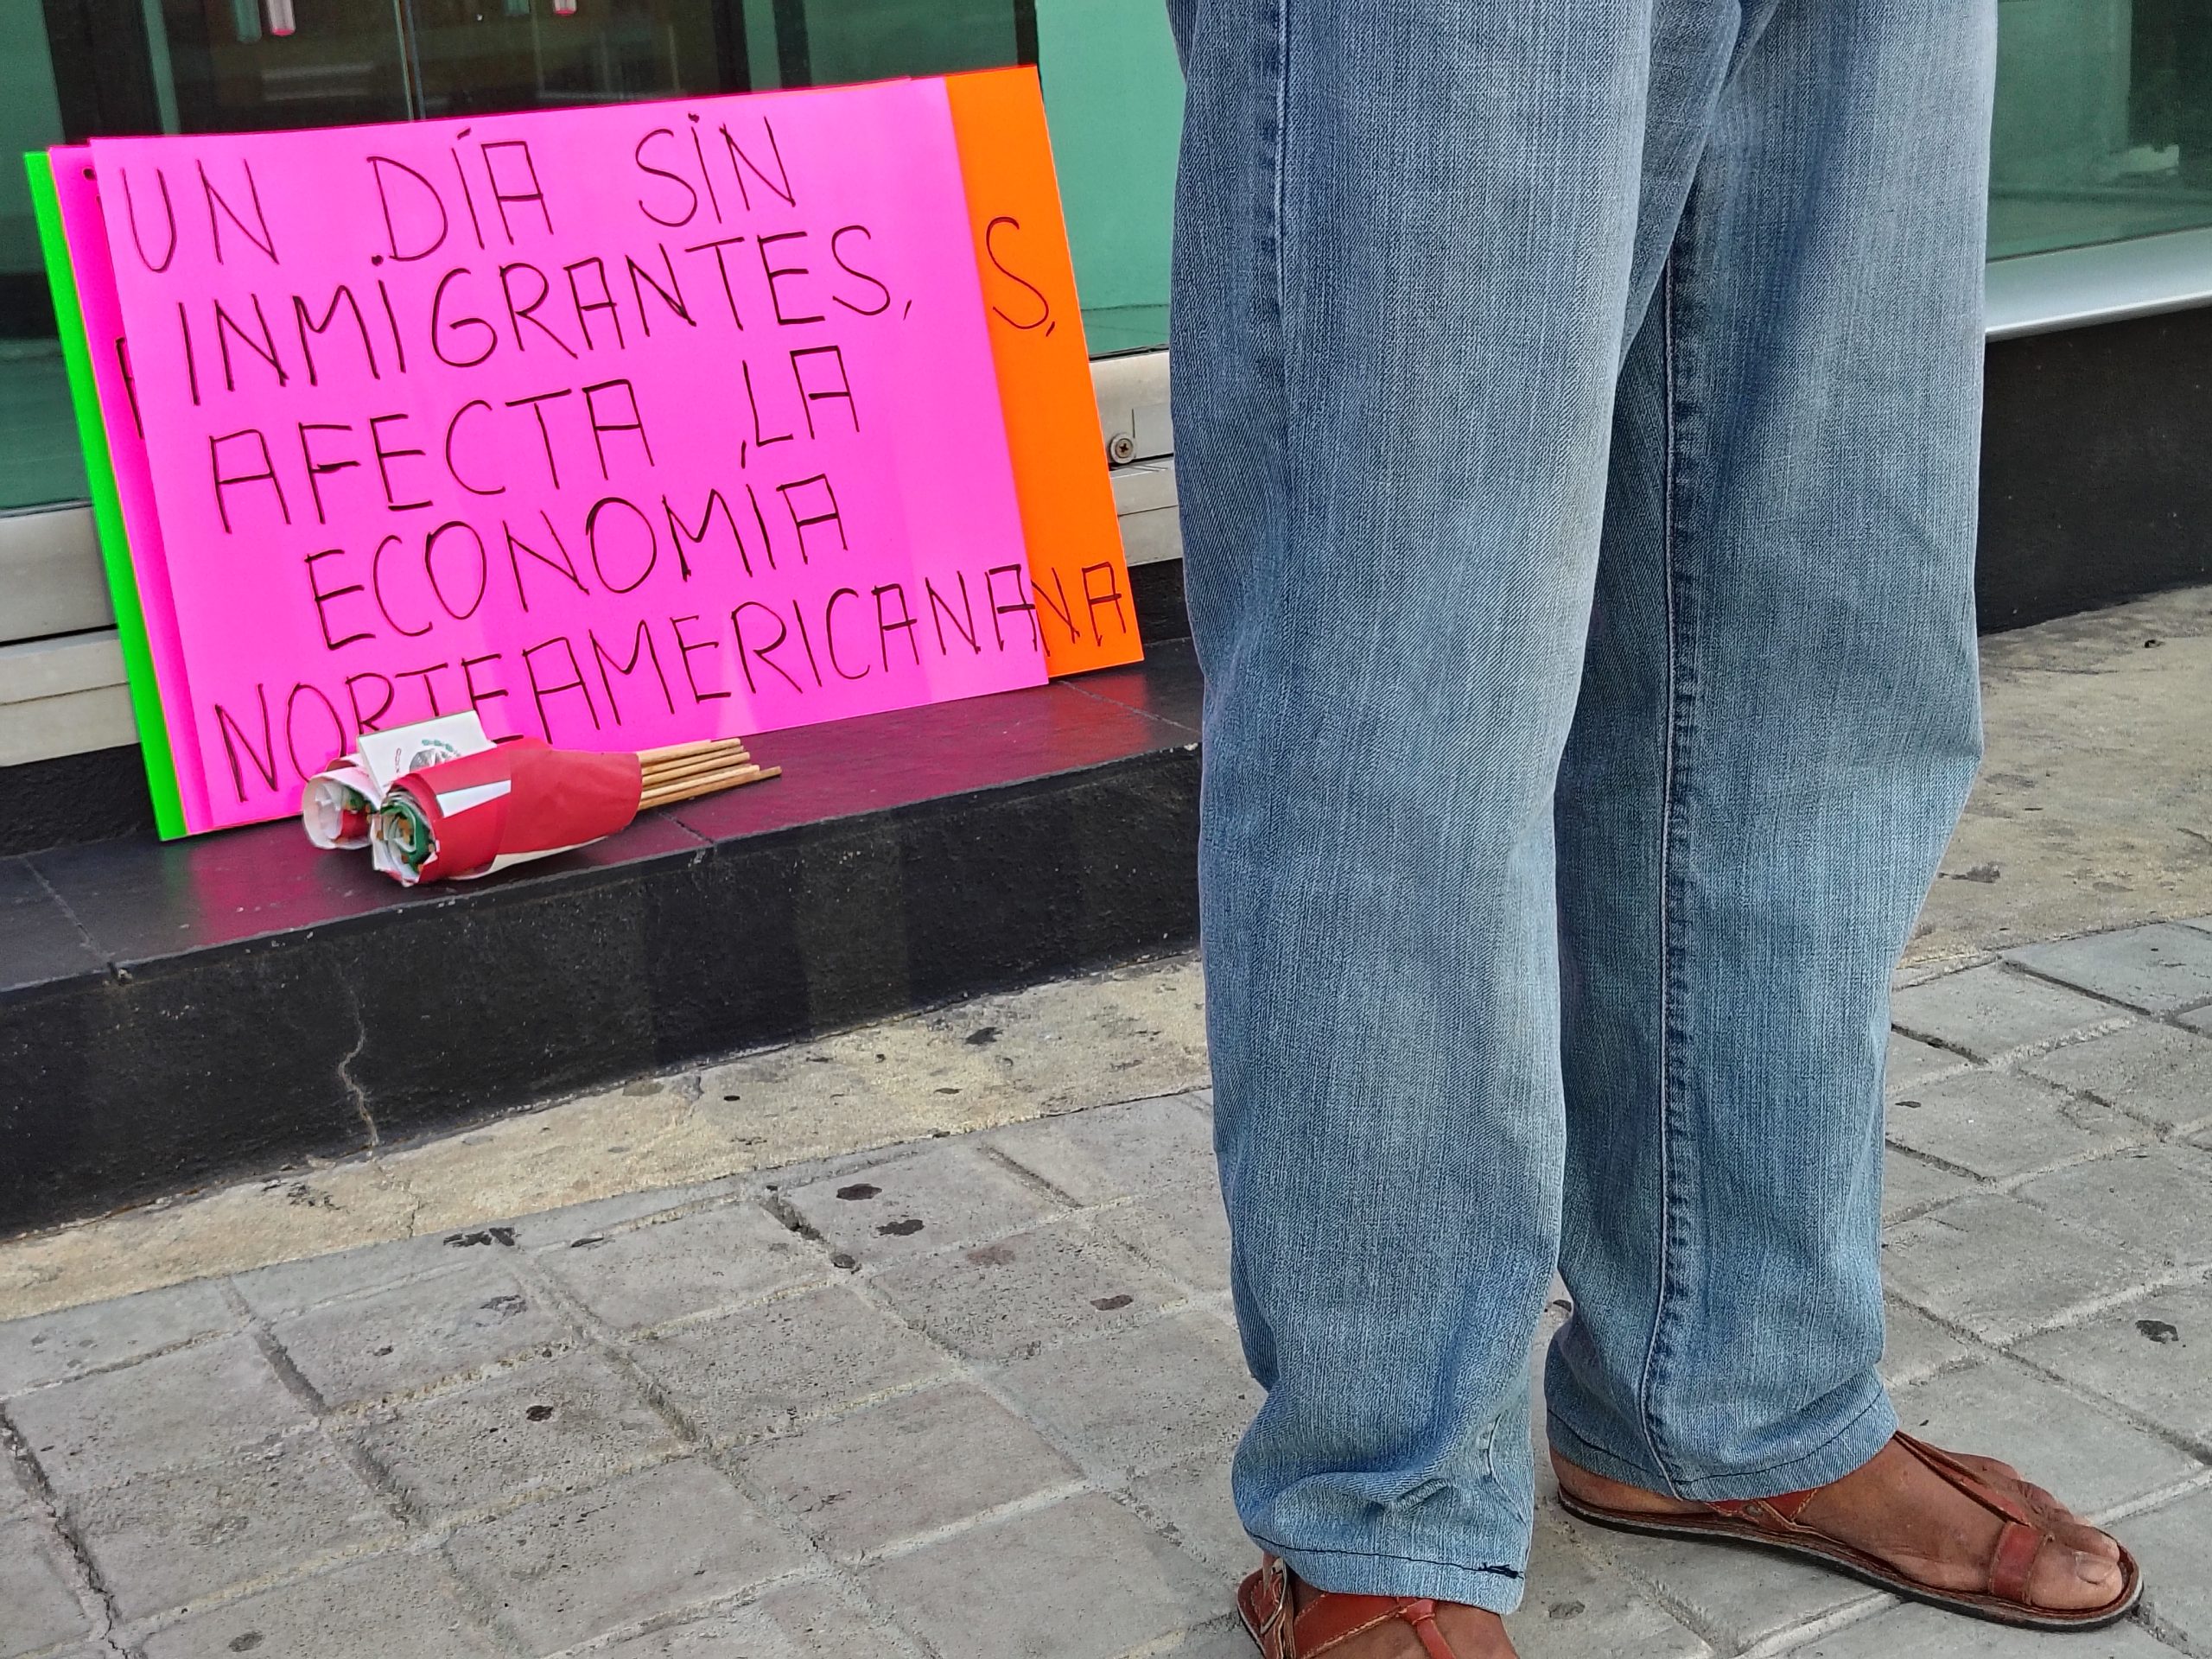 UN DÍA SIN
INMIGRANTES,
AFECTA LA
ECONOMÍA
NORTEAMERICANA
S,
NA